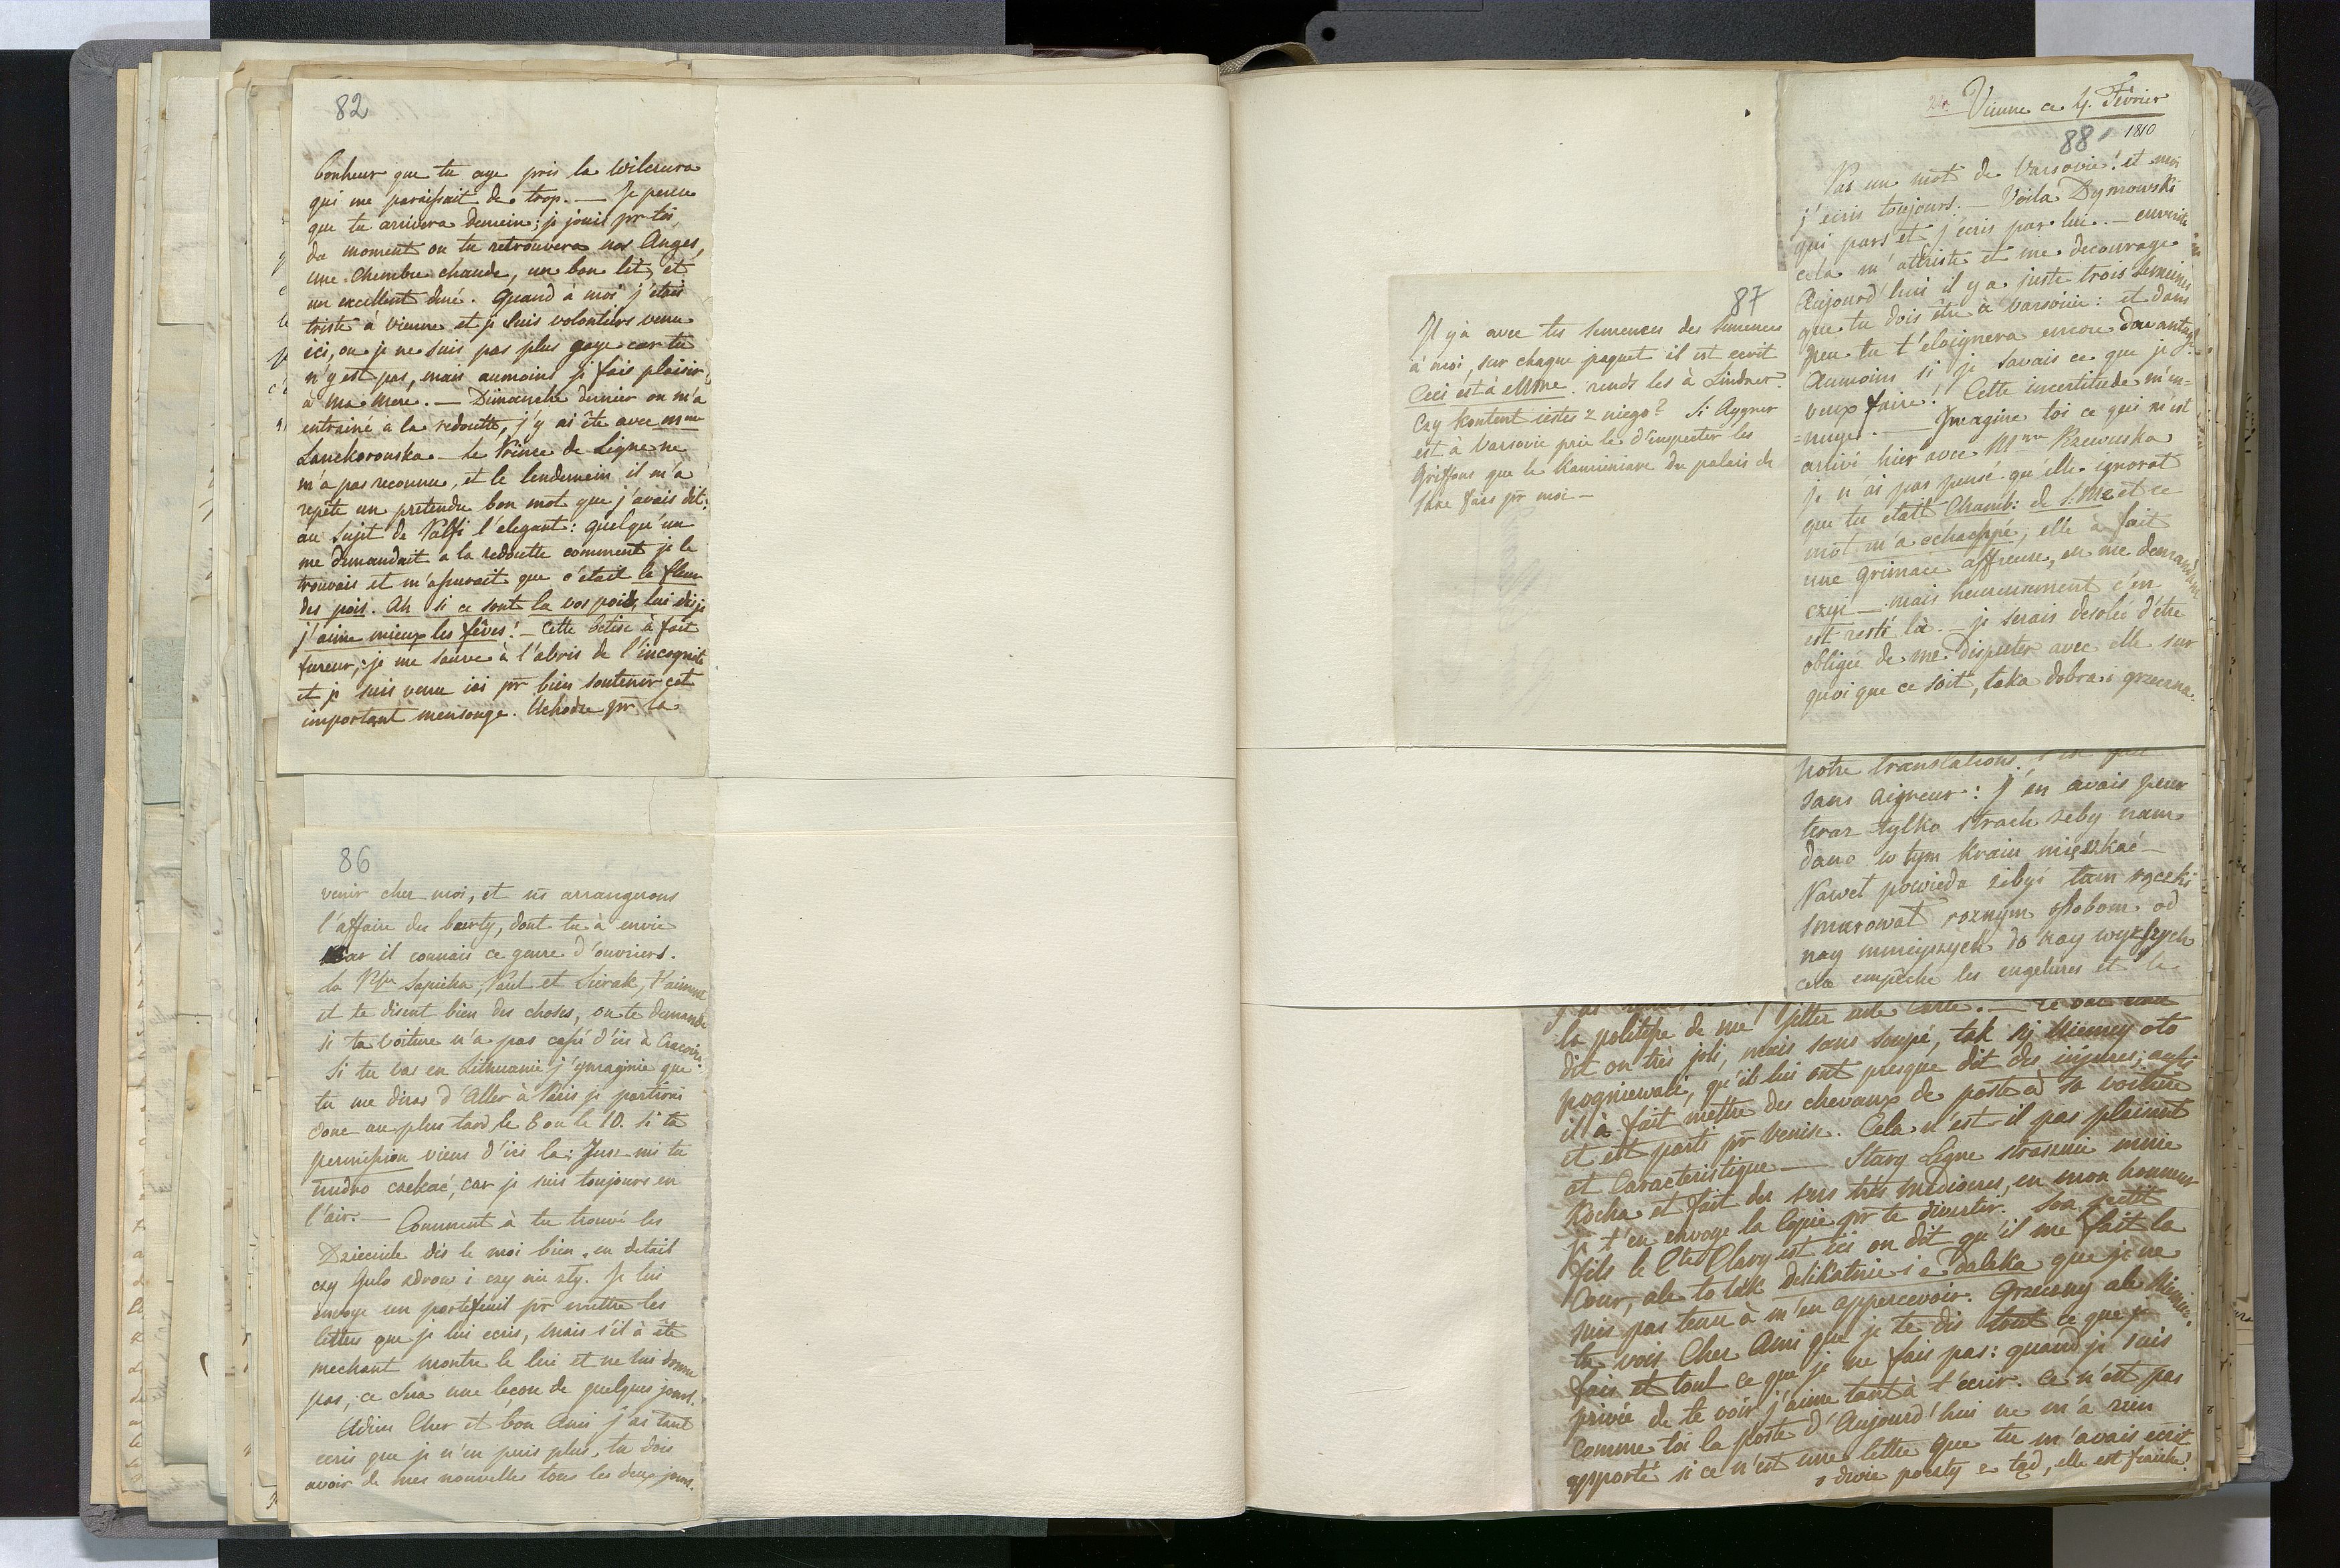 82
bonheur que tu aye pris la Wilczura
qui me paraissait de trop. — Je pense
que tu arrivera demein; je jouis pr toi
du moment ou tu retrouvera nos Anges,
une Chembre chaude, un bon lit, et
un excellent diné. Quand à moi j'étais
triste à Vienne et je suis volontiers venue
ici, ou je ne suis pas plus gaye car tu
n'y est pas, mais aumoins je fais plaisir
à ma Mere. — Dimanche dernier on m'a
entrainé a la redoutte, j'y ai ête avec Mme
Lanckoronska — le Prince de Ligne ne
m'a pas reconnue, et le lendemein il m'a
repété un pretendu bon mot que j'avais dit:
au sujet de Palfi l'elegant: quelqu'un
me demandait a la redoutte comment je le
trouvais et m'assurait que c'était la fleur
des pois. Ah si ce sont la vos pois, lui dis je
j'aime mieux les fêves! — Cette betise à fait
fureur, je me sauve à l'abris de l'incognito
et je suis venue ici pr bien soutenir cet
important mensonge. Uchodze pr la
86
venir chez moi, et ns arrangerons
l'affaire des , dont tu à envie
car il connais ce genre d'ouvriers.
la Psse Sapieha, Paul et Sierak, t'aiment
et te disent bien des choses, on te demande
si ta voiture n'a pas cassé d'ici à Cracovie.
Si tu vas en Lithuanie j'ymaginie que
tu me diras d'Aller à Paris je partirai
donc au plus tard le 6 ou le 10. si ta
permission viens d'ici la: Jusz mi tu
nudno czekać, car je suis toujours en
l'air. — Comment à tu trouvé les
Dzieciule dis le moi bien en detail
czy Gulo zdrow i czy nie zty. Je lui
envoye un portefeuil pr mettre les
lettres que je lui ecris, mais s'il à ête
mechant montre le lui et ne lui donne
pas, ce sera une leçon de quelques jours.
Adieu Cher et bon Ami j'ai tant
ecris que je n'en puis plus, tu dois
avoir de mes nouvelles tous les deux jours.
87
Il y à avec tes semences des semences
à moi, sur chaque paquet il est ecrit
Ceci est à elle. rends les à Lindner.
Czy kontent iestes z niego? Si Aygner
est à Varsovie prie le d'inspecter les
Griffons que le Kamieniarz du palais de
Saxe fais pr moi —
Vienne ce 4. Fevrier
1810
88
Pas un mot de Varsovie! et moi
j'ecris toujours. — Voila Dymowski
qui pars et j'écris par lui. —
cela m'attriste et me decourage
Aujourd'hui il y a juste trois semeines
que tu dois être à Varsovie: et dans
peu tu t'eloignera encore davantage.
Aumoins si je savais ce que je
veux faire! Cette incertitude m'en-
=nuye. — Ymagine toi ce qui m'est
arrivé hier avec Mme Rzewuska
je n'ai pas pensé qu'elle ignorat
que tu etait Chamb: de S. M. et ce
mot m'a echappé, elle a fait
une grimace affreuse, en me demandant
czyi — mais heureusement c'en
est resté la. — je serais desolée d'être
obligée de me disputer avec elle sur
quoi que ce soit, taka dobra i grzeczna.
notre translations.
sans Aigreur: J'en avais peur
teraz tylko strach zeby nam
dano w tym kraiu mięszkać —
Nawet powieda zibyś tam rączki
smarowat roznym osobom od
nay mnieyszych do nay wyższych
cela empêche les engelures et
la politesse de me jetter une carte. —
dit on très joli, mais sans soupé, tak się Niemcy oto
pogniewali, qu'il lui ont presque dit des injures; aussi
il à fait mettre des chevaux de poste à sa voiture
et est parti pr Venise. Cela n'est-il pas plaisant
et Caracteristique — Stary Ligne straznie mnie
Kocha et fait des vers très mediocres, en mon honneur
je t'en envoye la Copie pr te divertir. Son petit
fils le Cte Clary est ici on dit qu'il me fait la
Cour, ale to tak delikatnie i z daleka que je ne
suis pas tenu à m'en appercevoir. Grzeczny ale Niemiec.
tu vois Cher Ami que je te dis tout ce que je
fais et tout ce que je ne fais pas: quand je suis
privée de te voir j'aime tant à t'ecrir. Ce n'est pas
comme toi la poste d'Aujourd'hui ne m'a rien
apporté si ce n'est une lettre que tu m'avais ecrit
o dwie poczty z tąd, elle est fraiche!